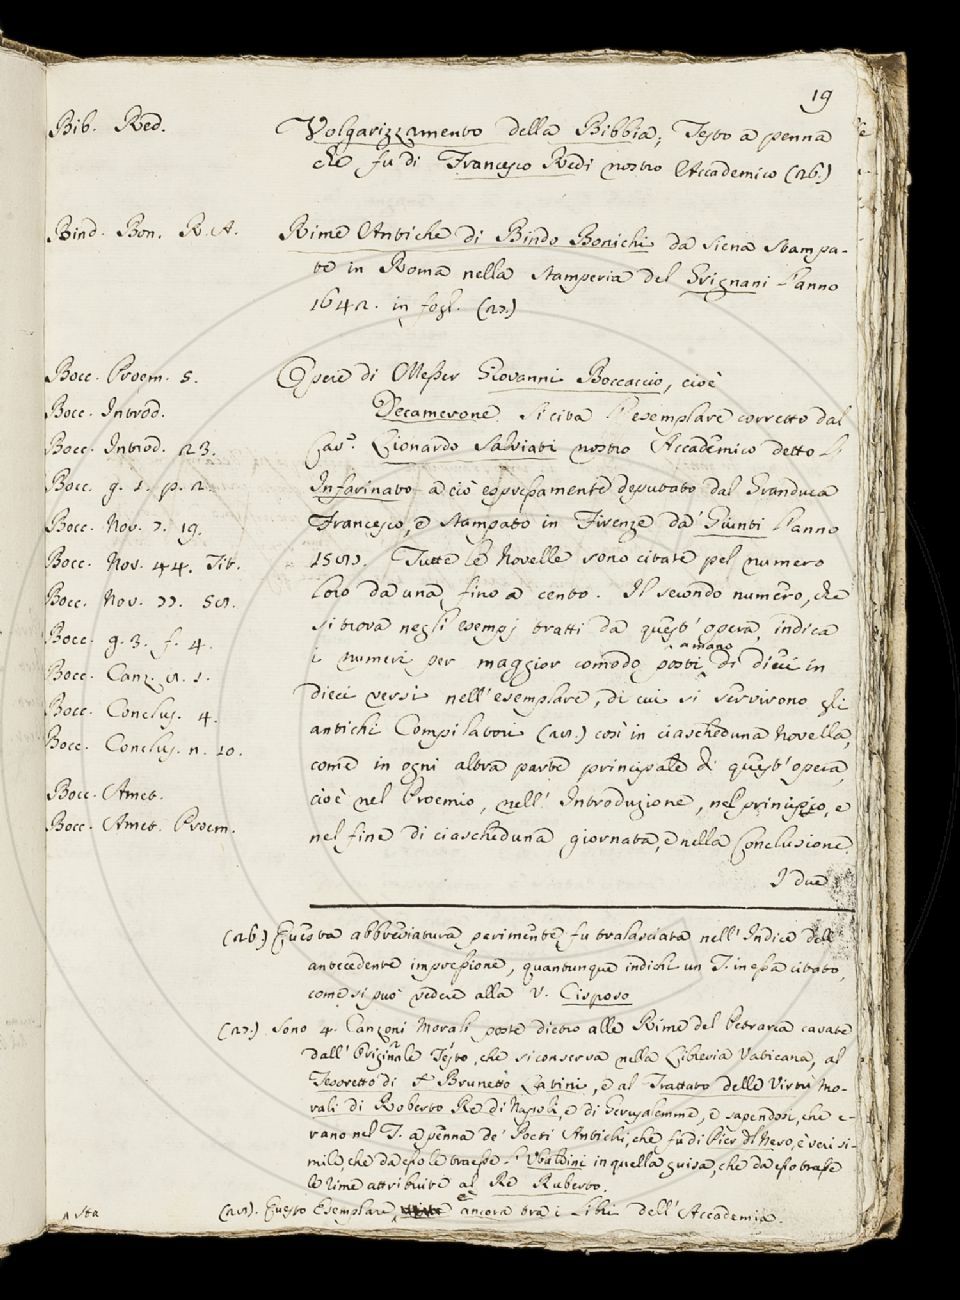 19
Bib. Red.
Volgarizzamento della Bibbia; Testo a penna
che fu di Francesco Redi nostro Accademico (26.)
Bind. Bon. R. A.
Rime Antiche di Bindo Bonichi da Siena Stampa-
te in Roma nella Stamperia del Grignani l'anno
1642. in fogl. (27.)
Bocc. Proem. 5.
Bocc. Introd.
Bocc. Introd. 23.
Bocc. g. 1. p. 2.
Bocc. Nov. 7. 19.
Bocc. Nov. 44. Tit.
Bocc. Nov. 77. 58.
Bocc. g. 3. f. 4.
Bocc. Canz. 8. 1.
Bocc. Conclus. 4.
Bocc. Conclus. n. 10.
Bocc. Amet.
Bocc. Amet. Proem.
Opere di Messer Giovanni Boccaccio, cioè
Decamerone. Si cita l'esemplare corretto dal
Cav.r Lionardo Salviati nostro Accademico detto l'
Infarinato a ciò espressamente deputato dal Granduca
Francesco, e stampato in Firenze da' Giunti l'anno
1587. Tutte le Novelle sono citate pel numero
loro da una, fino a cento. Il secondo numero, che
si trova negli esempj tratti da quest'opera, indica
i numeri per maggior comodo posti a mano di dieci in
dieci versi nell'esemplare, di cui si servirono gli
antichi Compilatori (28.) così in ciascheduna Novella,
come in ogni altra parte principale di quest'opera,
cioè nel Proemio, nell'Introduzione, nel principio, e
nel fine di ciascheduna giornata, e nella Conclusione.
I due
(26.) Questa abbreviatura parimente fu tralasciata nell'Indice dell'
antecedente impressione, quantunque indichi un T. in essa citato,
come si può vedere alla V. Cisposo
(27.) Sono 4. Canzoni Morali poste dietro alle Rime del Petrarca cavate
dall'Originale Testo, che si conserva nella Libreria Vaticana, al
Tesoretto di S. Brunetto Latini, e al Trattato delle Virtù Mo-
rali di Roberto Re di Napoli, e di Gerusalemme, e sapendosi, che e-
rano nel T. a penna de' Poeti Antichi, che fu di Pier del Nero, è veri si-
mile, che da esso le traesse l'Ubaldini in quella guisa, che da esso trasse
le rime attribuite al Re Ruberto.
(28.) Questo Esemplare è ancora tra i Libri dell'Accademia.
sta